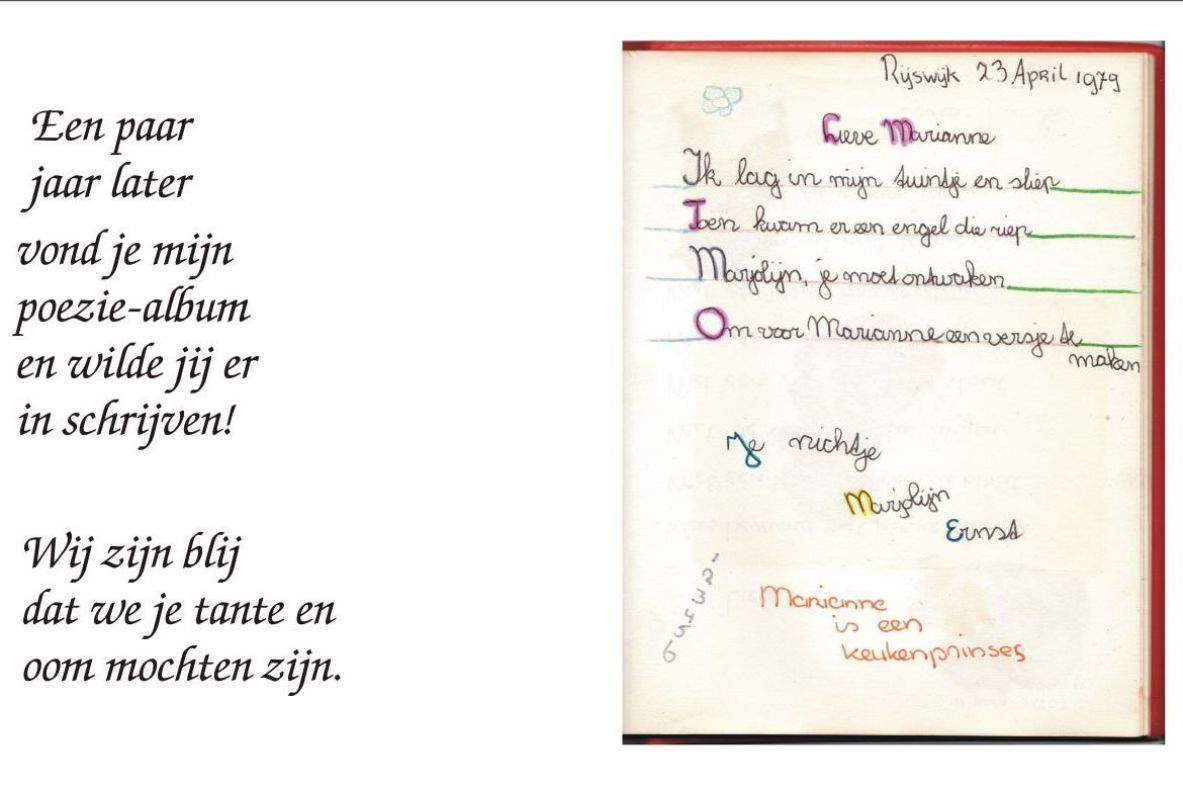 Een paar
jaar later
vond je mijn
poezie-album
en wilde jij er
in schrijven!
Wij zijn blij
dat we je tante en
oom mochten zijn.
Rijswijk 23 April 1979
Lieve Marianne
Ik lag in mijn tuintje en sliep
Toen kwam er een engel die riep
Marjolijn, je moet ontwaken
Om voor Marianne een versje te
maken
Je nichtje
Marjolijn
Ernst
1
2
3
4
5
6
Marianne
is een
keukenprinses